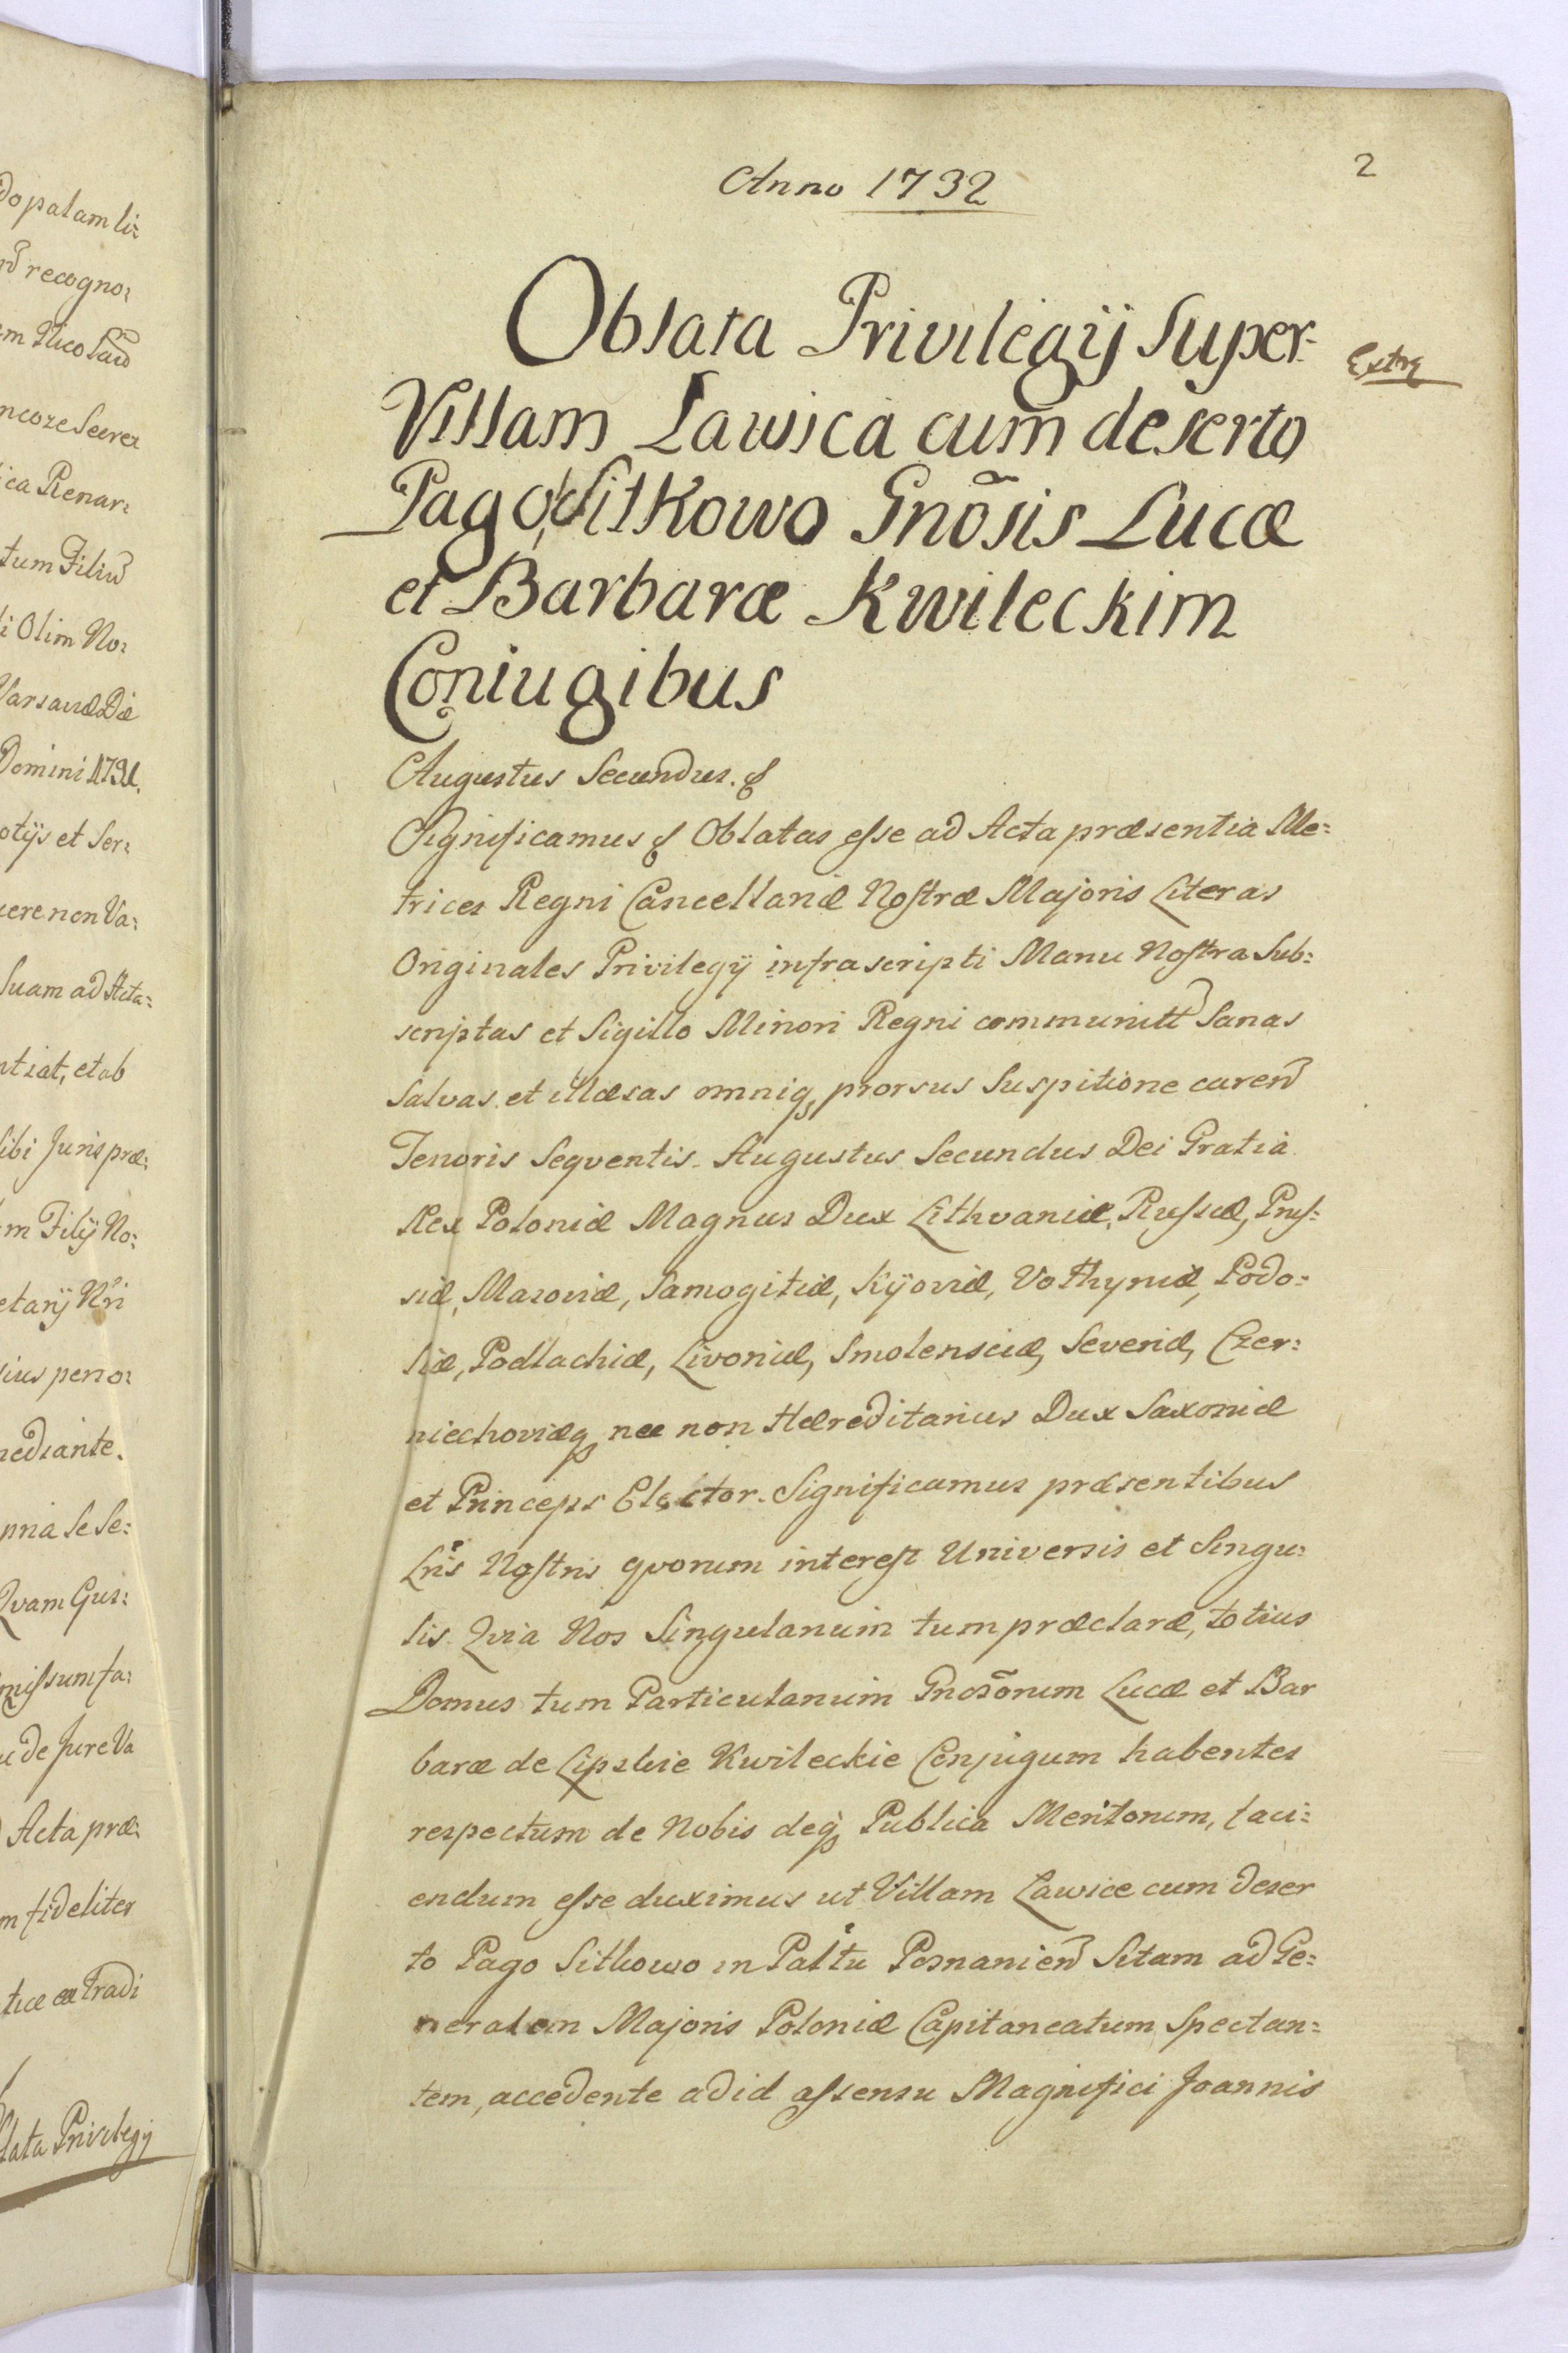 do palam li:
recogno:
ncoze Secrez
ica Renar:
tum Filiū
i Olim No:
Varsaviæ Die
Domini 1732.
otijs et Ser:
cere non Va:
Suam ad Acta:
ntiat, et ab
sibi Juris præ:
m Filij No:
etarij Nri
ius per no:
nediante.
pria se se:
Qvam Gus:
missum fa:
de Jure Va
Acta præ:
m fideliter
tradi
lata Privilegij
2
Anno 1732
Oblata Privilegij Super
Villam Lawica cum deserto
Pago, Sitkowo Gnōsis Lucæ
et Barbaræ Kwileckim
Coniugibus
Extrq
Augustus Secundus. &
Significamus & Oblatas esse ad Acta præsentia Me=
trices Regni Cancellariæ Nostræ Majoris Literas
Originales Privilegij infrascripti Manu Nostra Sub=
scriptas et Sigillo Minori Regni communitt Sanas
Salvas et illæsas omniq prorsus Suspitione caren
Tenoris Seqventis. Augustus Secundus Dei Gratia
Rex Poloniæ Magnus Dux Lithvaniæ, Russiæ, Prus=
siæ, Mazoviæ, Samogitiæ, Kijoviæ, Volhyniæ, Podo=
liæ, Podlachiæ, Livoniæ, Smolensciæ, Severiæ, Czer=
niechoviæq nec non Hæreditarius Dux Saxoniæ
et Princeps Elector. Significamus præsentibus
Lris Nostris qvorum interest Universis et Singu=
lis. Qvia Nos Singularium tum præclaræ, totius
Domus tum Particularium Gnosõrum Lucæ et Bar
baræ de Lipskie Kwileckie Conjugum habentes
respectum de Nobis deq Publica Meritorum, faci=
endum esse duximus ut Villam Lawice cum deser
to Pago Sitkowo in Pal̃tu Posnanien Sitam ad Ge=
neralem Majoris Poloniæ Capitaneatum Spectan=
tem, accedente ad id assensu Magnifici Joannis